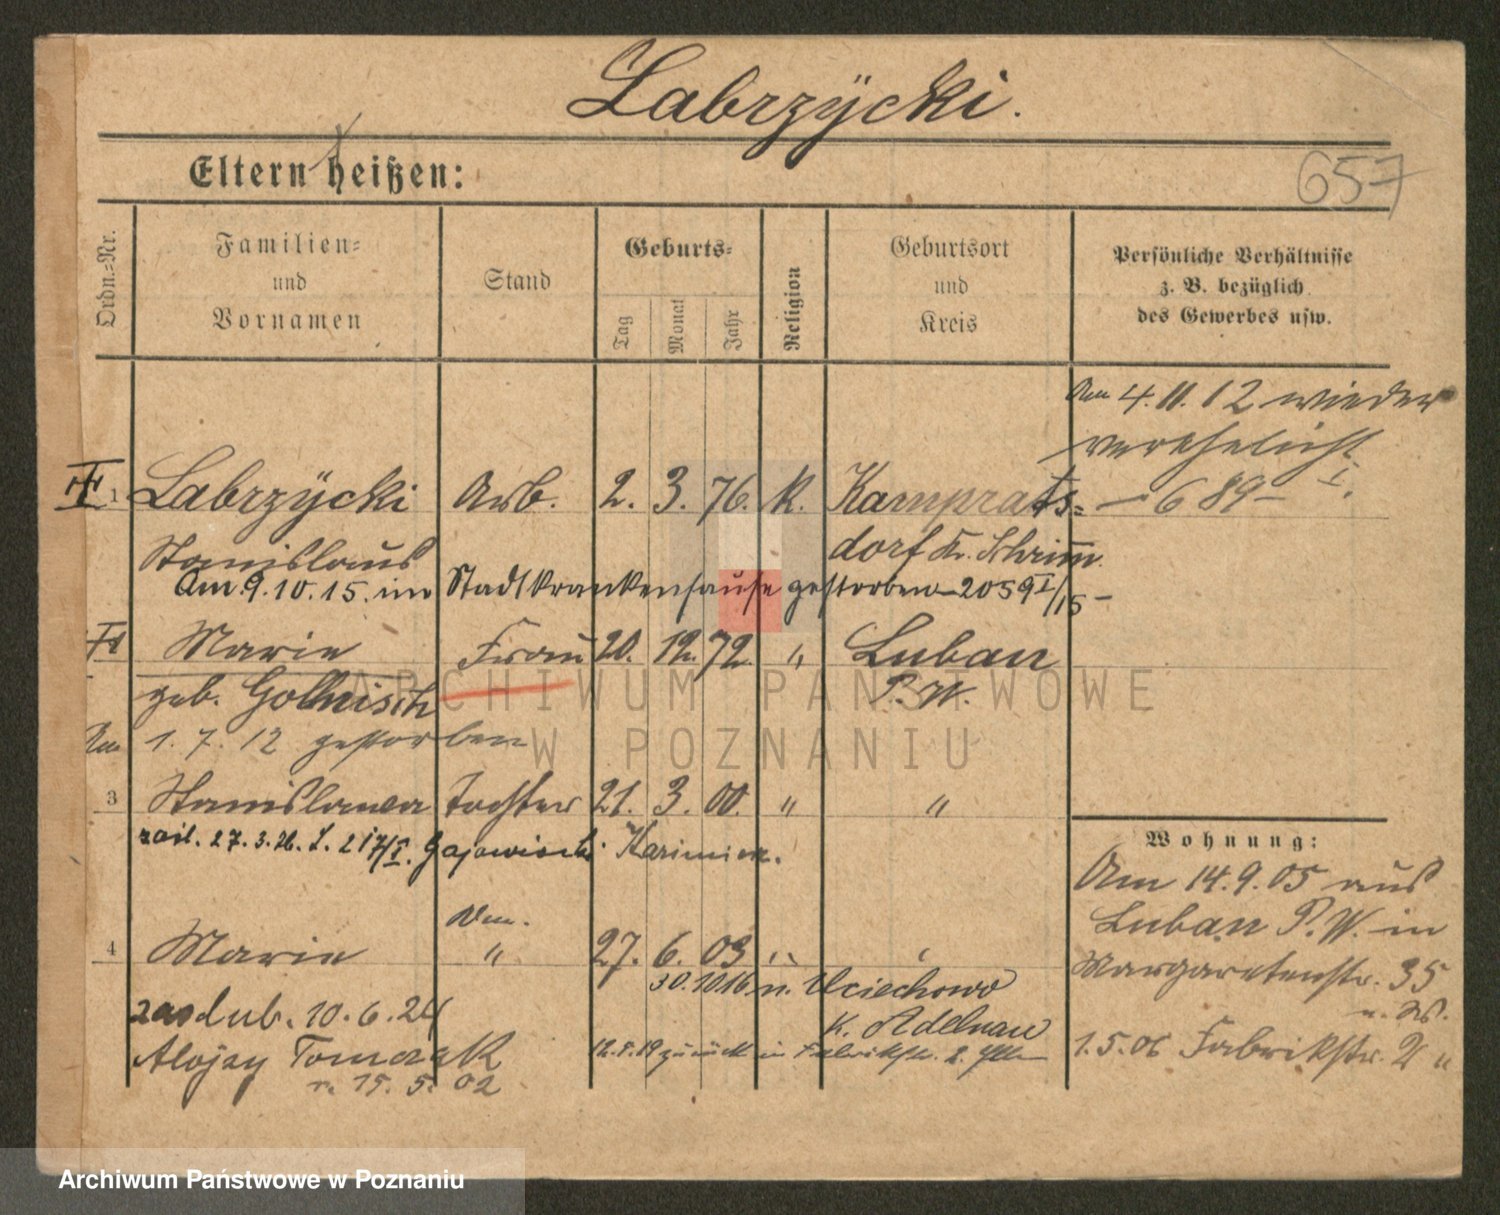 Labrzÿcki.
657
Eltern heißen:
Ordn.=Nr.
Familien= und Vornamen
Stand
Geburts=
Tag
Monat
Jahr
Religion
Geburtsort und Kreis
Persönliche Verhältnisse
z. B. bezüglich
des Gewerbes usw.
Am 4.11.12 wieder
verehelicht
— 689 — I.
1 Labrzÿcki Arb. 2. 3. 76. K. Kamprats=
Stanislaus dorf Kr. Schrimm
Am 9.10.15. im Stadtkrankenhause gestorben 2059 I/15 —
Marie Frau 20. 12. 72. " Luban
geb. P. W.
Am 1. 7. 12 gestorben
3 Stanislawa Tochter 21. 3. 00. " "
27. 3. 26. Kazimierz.
Wohnung:
Am 14.9.05 aus
Luban P. W. in
Margaretenstr. 35
4 Marie " 27. 6. 03 "
30.10.16 n. Uciechowo
K. Adelnau
zaślub. 10.6.24
Alojzy Tomczak
r. 15. 5. 02
zurück in Fabrikstr.
1.5.06 Fabrikstr. 2 "
ARCHIWUM PAŃSTWOWE
W POZNANIU
Archiwum Państwowe w Poznaniu